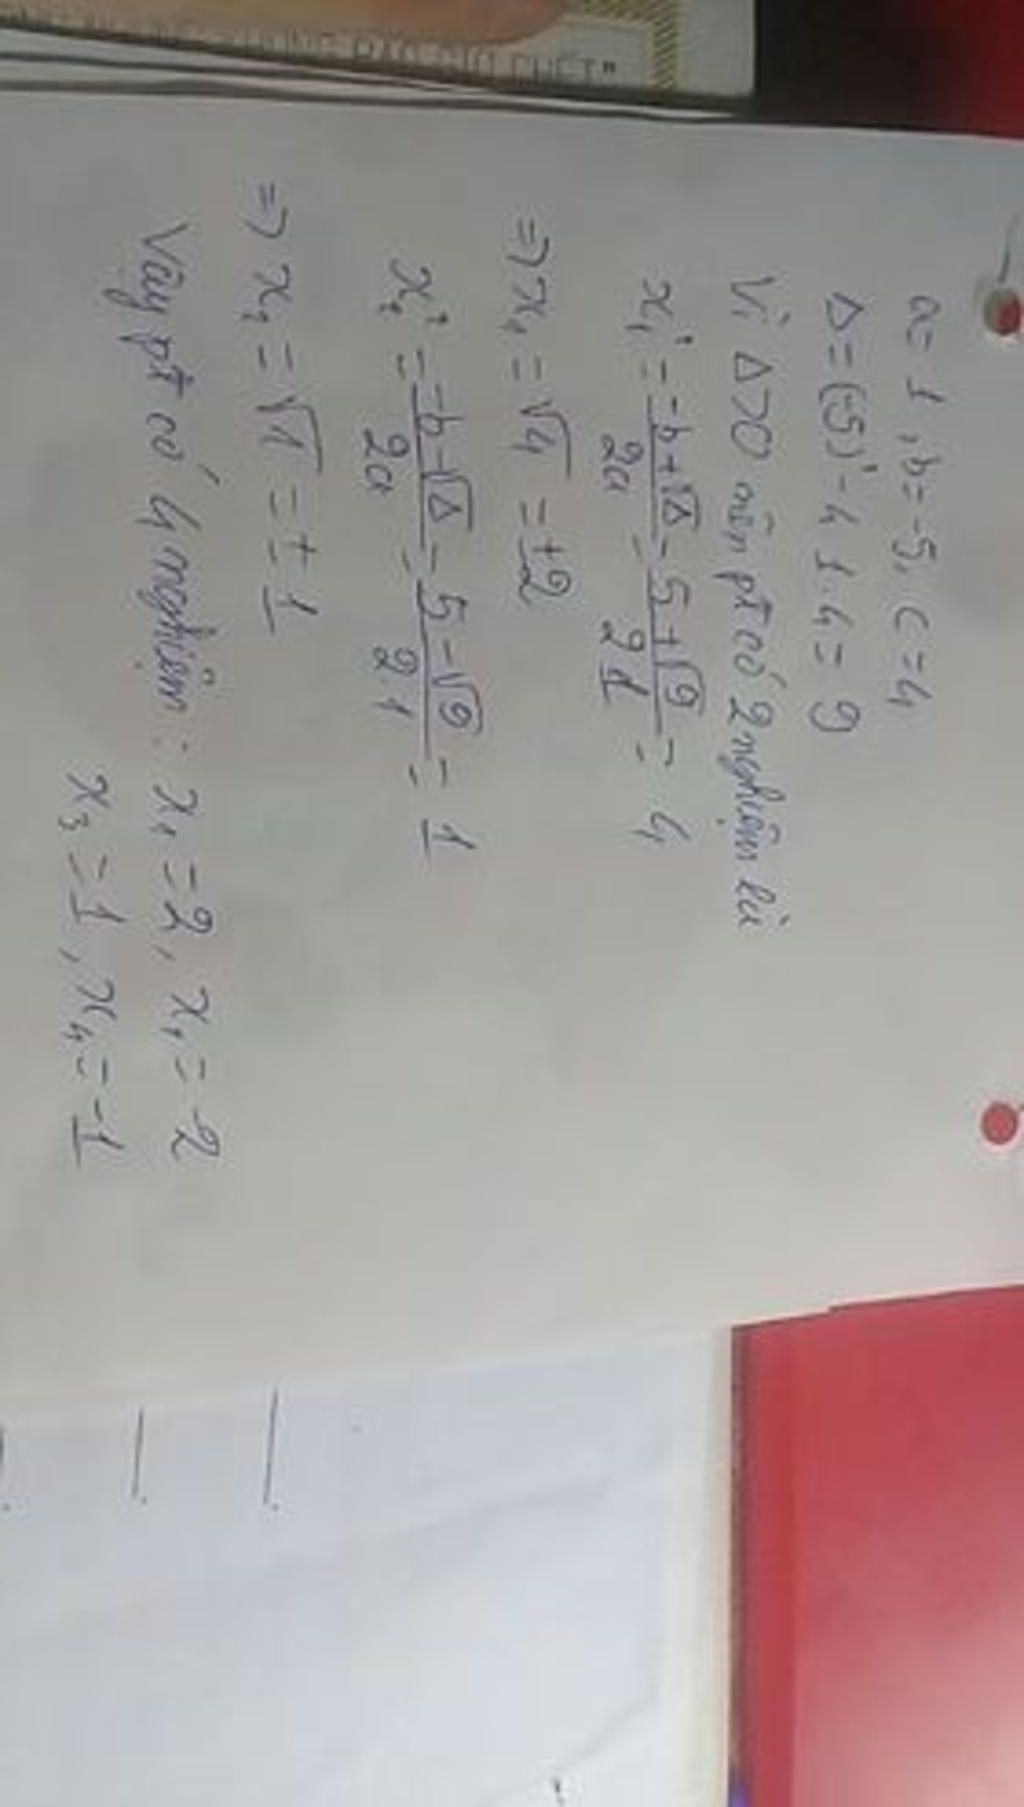 a = 1, b = -5, c = 4
Δ = (-5)² - 4.1.4 = 9
Vì Δ>0 nên pt có 2 nghiệm là
x₁² = (-b+√Δ)/2a = (5+√9)/2.1 = 4
=> x₁ = √4 = ±2
x₂² = (-b-√Δ)/2a = (5-√9)/2.1 = 1
=> x₂ = √1 = ±1
Vậy pt có 4 nghiệm : x₁ = 2, x₂ = -2
x₃ = 1, x₄ = -1